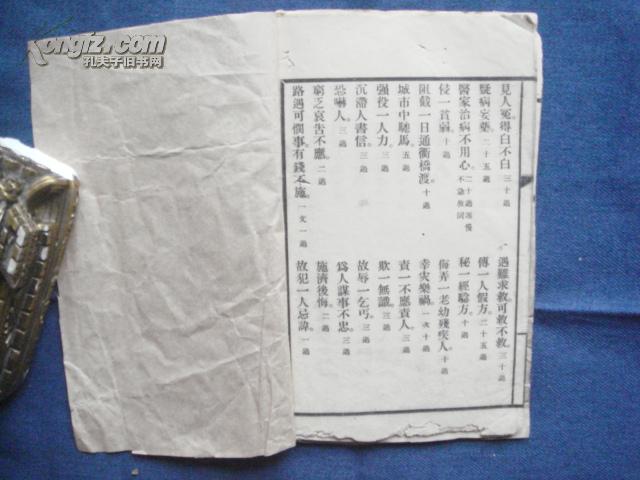 見人冤得白不白。三十過
遇難求救可救不救。三十過
疑病妄藥。二十五過
傳一人假方。二十五過
醫家治病不用心。二十過
不急救同
秘一經驗方。十過
侵一貧弱。十過
侮弄一老幼殘疾人。十過
阻截一日通衢橋渡。十過
幸災樂禍。一次十過
城市中馳馬。五過
責一不應責人。三過
強役一人力。三過
欺一無識。三過
沉滯人書信。三過
故辱一乞丐。三過
恐嚇人。三過
為人謀事不忠。三過
窮乏哀告不應。二過
施濟後悔。二過
路遇可憫事有錢不施。一文一過
故犯一人忌諱。一過
kongfz.com
孔夫子旧书网